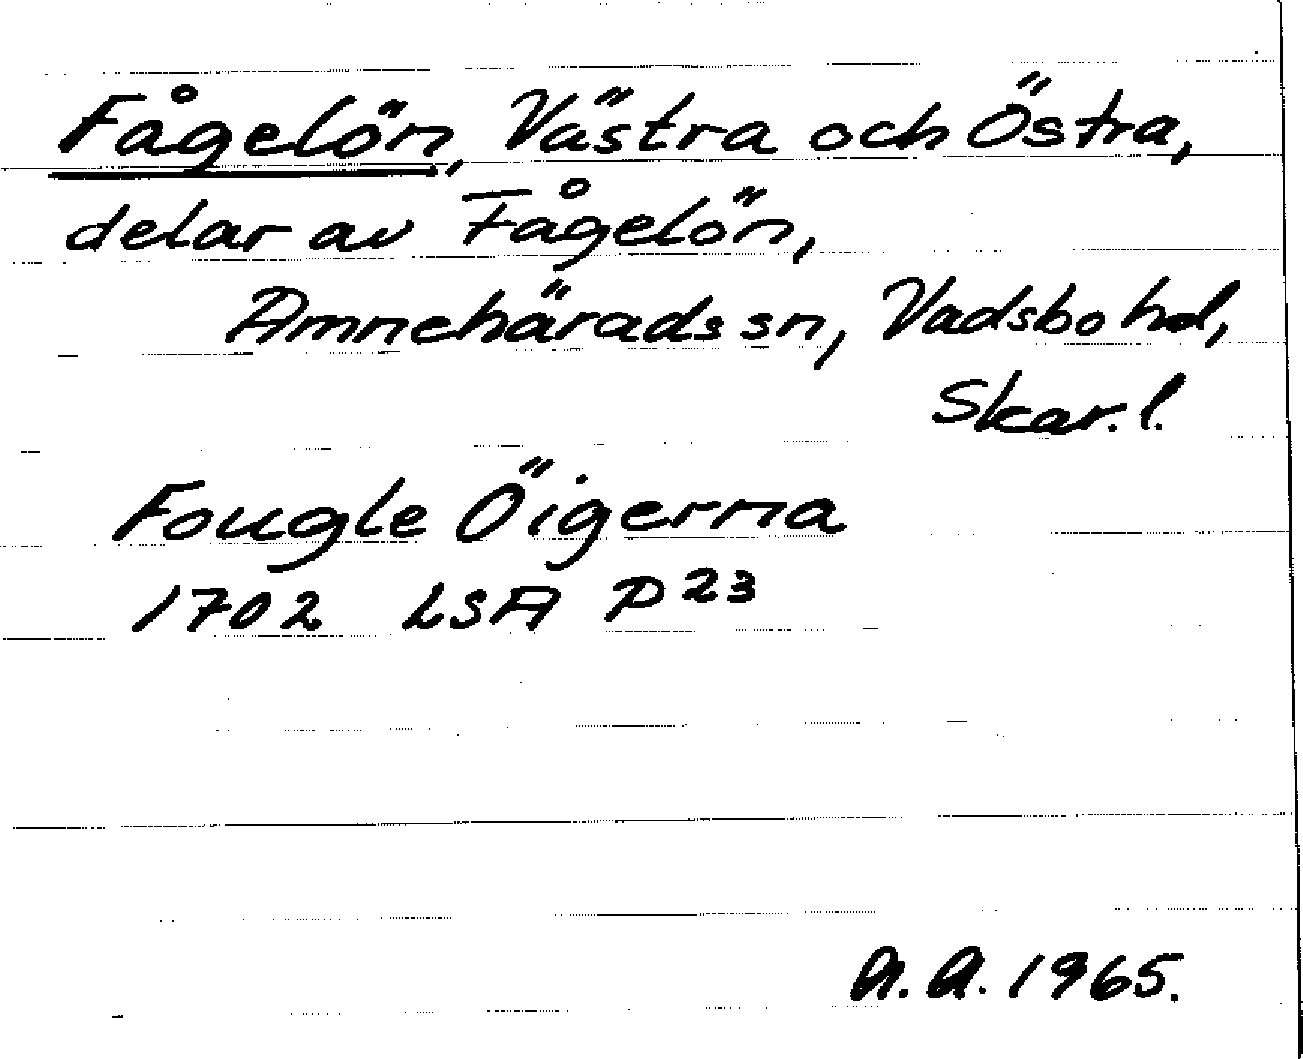 Fågelön, Västra och Östra,
delar av Fågelön,
Amnehärads sn, Vadsbo hd,
Skar. l.
Fougle Öigerna
1702 LSA P 23
A. A. 1965.